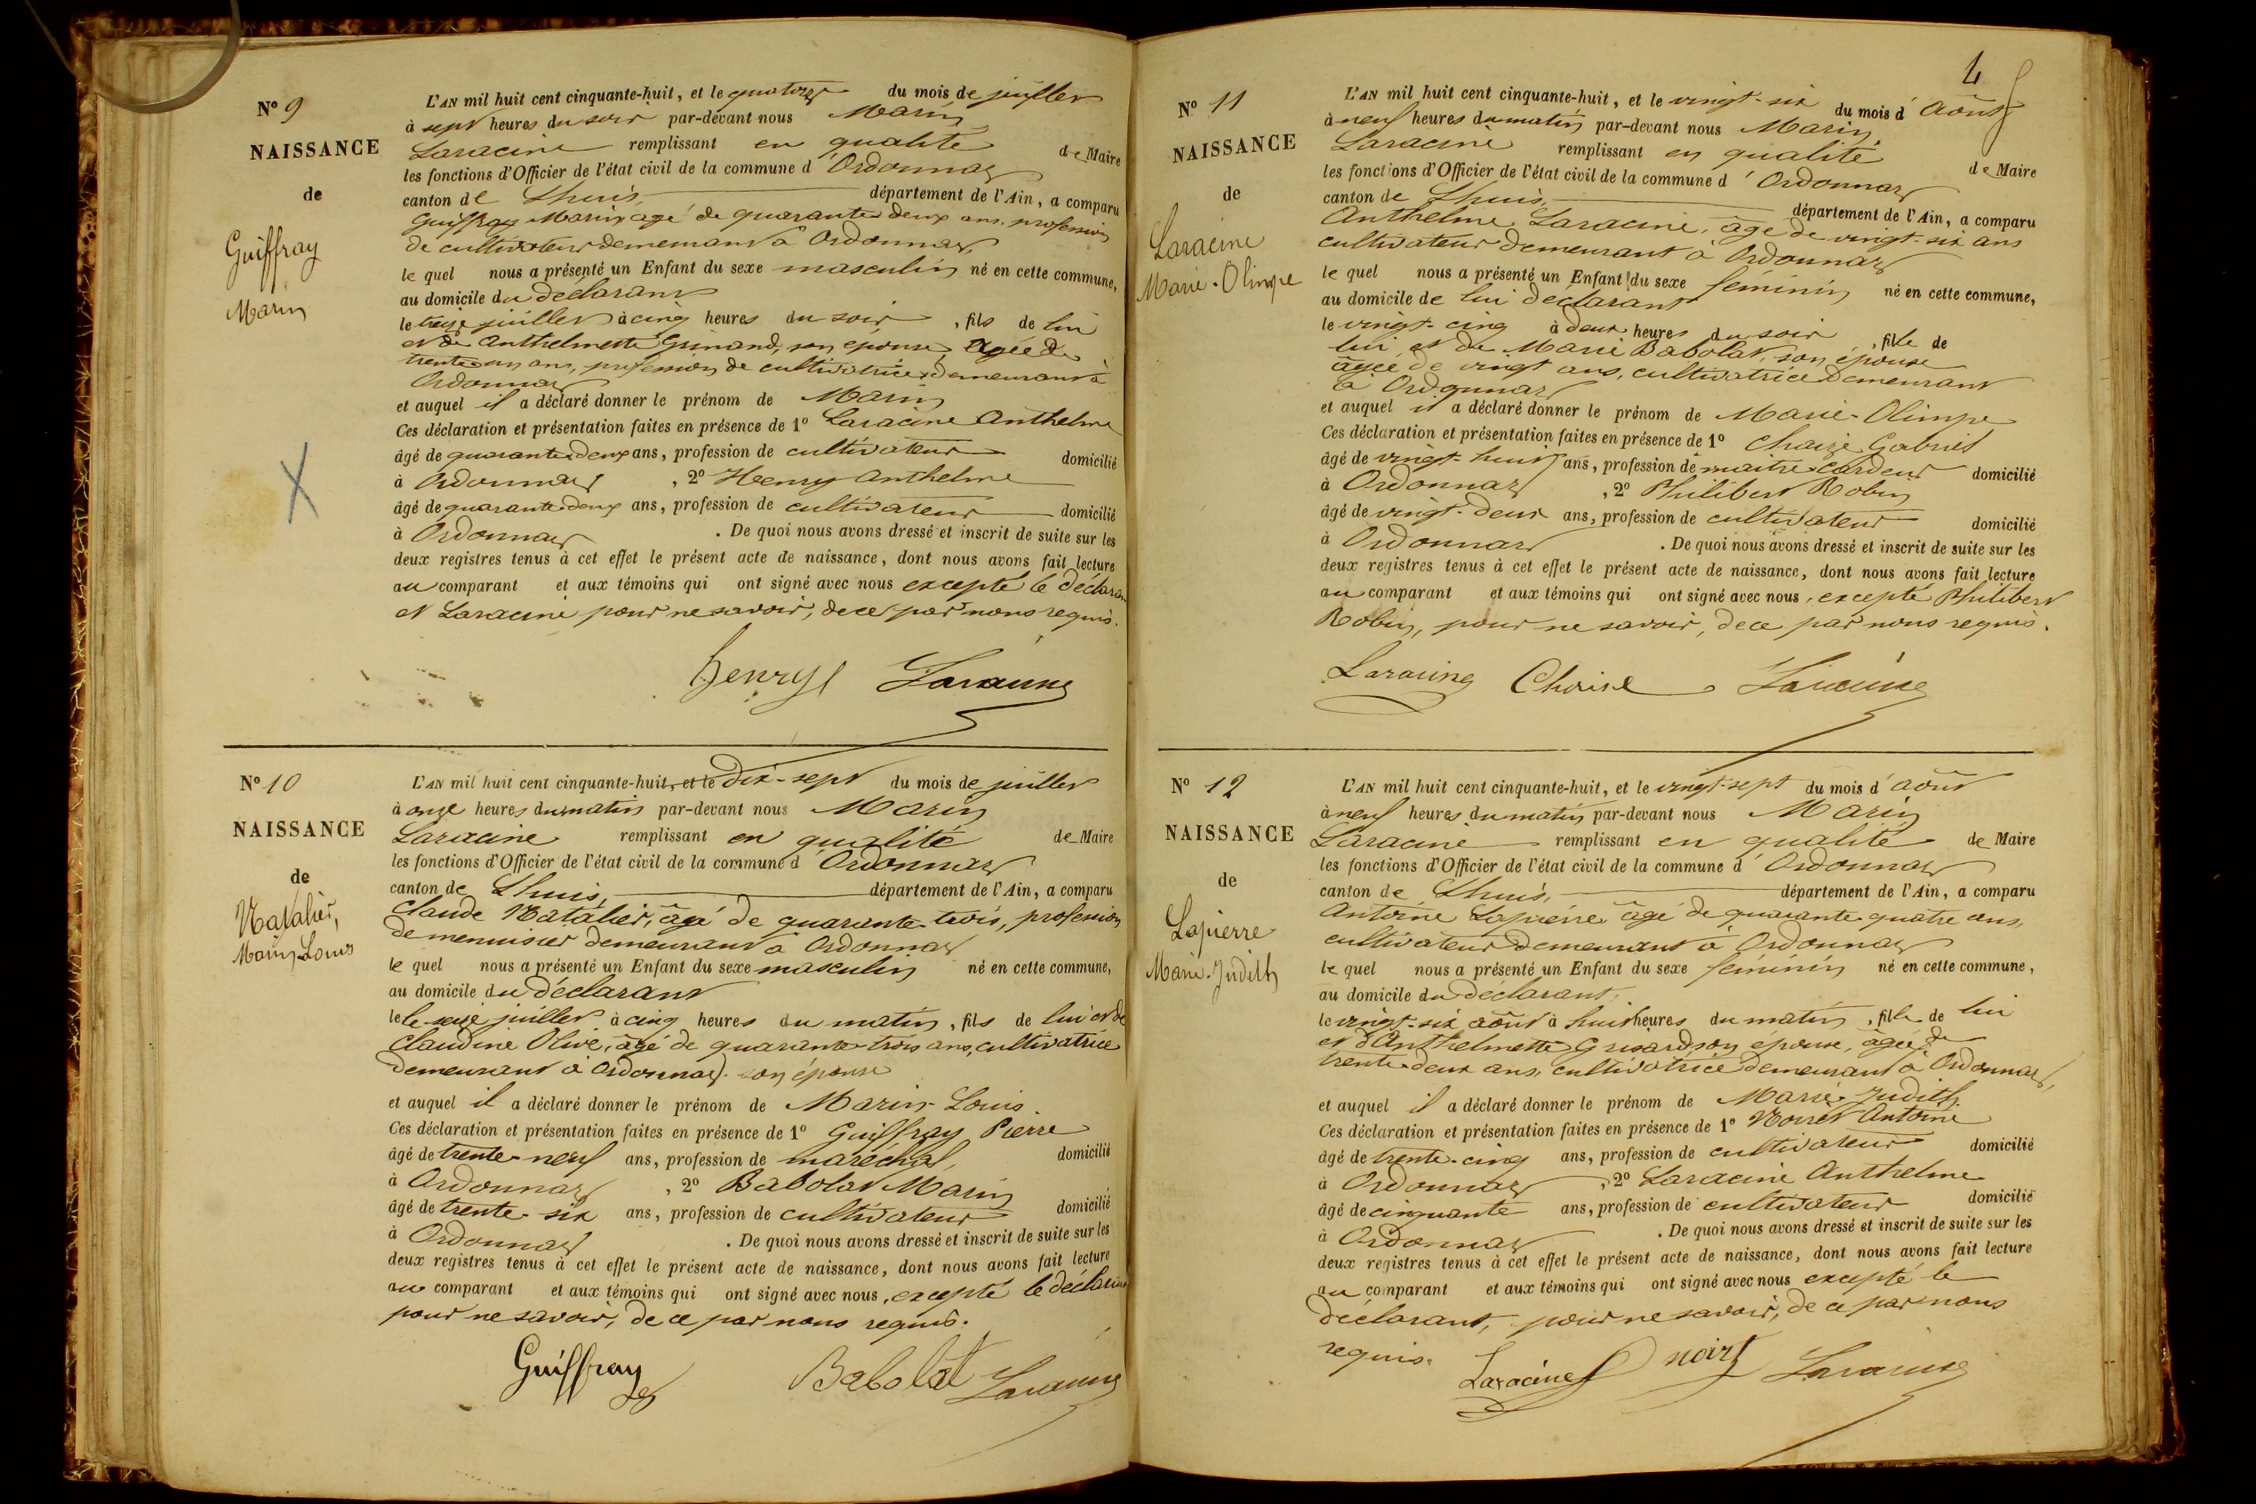 N° 9
NAISSANCE
de
Guiffray
Marin
L'AN mil huit cent cinquante-huit, et le quatorze du mois de juillet
à sept heures du soir par-devant nous Marin
Laracine remplissant en qualité de Maire
les fonctions d'Officier de l'état civil de la commune d'Ordonnaz
canton de Lhuis, département de l'Ain, a comparu
Guiffray Marin agé de quarante deux ans, profession
de cultivateur demeurant à Ordonnaz,
le quel nous a présenté un Enfant du sexe masculin né en cette commune,
au domicile du déclarant
le treize juillet à cinq heures du soir, fils de lui
et de Anthelmette Grinand, son épouse, agée de
trente ans, profession de cultivatrice demeurant à
Ordonnaz
et auquel il a déclaré donner le prénom de Marin
Ces déclaration et présentation faites en présence de 1° Laracine Anthelme
âgé de quarante deux ans, profession de cultivateur domicilié
à Ordonnaz, 2° Henry Anthelme
âgé de quarante deux ans, profession de cultivateur domicilié
à Ordonnaz. De quoi nous avons dressé et inscrit de suite sur les
deux registres tenus à cet effet le présent acte de naissance, dont nous avons fait lecture
au comparant et aux témoins qui ont signé avec nous excepté le déclarant
et Laracine pour ne savoir, de ce par nous requis.
henry Laracine
N° 10
NAISSANCE
de
Natalier,
Marin-Louis
L'AN mil huit cent cinquante-huit, et le Dix-sept du mois de juillet
à onze heures du matin par-devant nous Marin
Laracine remplissant en qualité de Maire
les fonctions d'Officier de l'état civil de la commune d'Ordonnaz
canton de Lhuis, département de l'Ain, a comparu
Claude Natalier, âgé de quarante-trois, profession
de menuisier demeurant à Ordonnaz
le quel nous a présenté un Enfant du sexe masculin né en cette commune,
au domicile du déclarant
le le seize juillet à cinq heures du matin, fils de lui et de
Claudine Olive, âgé de quarante-trois ans, cultivatrice
demeurant à Ordonnaz son épouse
et auquel il a déclaré donner le prénom de Marin-Louis.
Ces déclaration et présentation faites en présence de 1° Guiffray Pierre
âgé de trente-neuf ans, profession de maréchal, domicilié
à Ordonnaz, 2° Babolat Marin
âgé de trente-six ans, profession de cultivateur domicilié
à Ordonnaz. De quoi nous avons dressé et inscrit de suite sur les
deux registres tenus à cet effet le présent acte de naissance, dont nous avons fait lecture
au comparant et aux témoins qui ont signé avec nous, excepté le déclarant
pour ne savoir, de ce par nous requis.
Guiffray Babolat Laracine
4
N° 11
NAISSANCE
de
Laracine
Marie-Olimpe
L'AN mil huit cent cinquante-huit, et le vingt-six du mois d'Août
à neuf heures du matin par-devant nous Marin
Laracine remplissant en qualité de Maire
les fonctions d'Officier de l'état civil de la commune d'Ordonnaz
canton de Lhuis, département de l'Ain, a comparu
Anthelme Laracine, âgé de vingt-six ans
cultivateur demeurant à Ordonnaz
le quel nous a présenté un Enfant du sexe féminin né en cette commune,
au domicile de lui déclarant
le vingt-cinq à deux heures du soir, fille de
lui et de Marie Babolat, son épouse
âgée de vingt ans, cultivatrice demeurant
à Ordonnaz
et auquel il a déclaré donner le prénom de Marie-Olimpe
Ces déclaration et présentation faites en présence de 1° Chaize Gabriel
âgé de vingt-huit ans, profession de maitre cardeur domicilié
à Ordonnaz, 2° Philibert Robin
âgé de vingt-deux ans, profession de cultivateur domicilié
à Ordonnaz. De quoi nous avons dressé et inscrit de suite sur les
deux registres tenus à cet effet le présent acte de naissance, dont nous avons fait lecture
au comparant et aux témoins qui ont signé avec nous, excepté Philibert
Robin, pour ne savoir, de ce par nous requis.
Laracine Laracine
N° 12
NAISSANCE
de
Lapierre
Marie-Judith
L'AN mil huit cent cinquante-huit, et le vingt-sept du mois d'août
à neuf heures du matin par-devant nous Marin
Laracine remplissant en qualité de Maire
les fonctions d'Officier de l'état civil de la commune d'Ordonnaz
canton de Lhuis, département de l'Ain, a comparu
Antoine Lapierre âgé de quarante quatre ans,
cultivateur demeurant à Ordonnaz
le quel nous a présenté un Enfant du sexe féminin né en cette commune,
au domicile du déclarant,
le vingt-six août à huit heures du matin, fille de lui
et d'Anthelmette Grisard son épouse, âgée de
trente-deux ans, cultivatrice demeurant à Ordonnaz,
et auquel il a déclaré donner le prénom de Marie Judith.
Ces déclaration et présentation faites en présence de 1° Noiret Antoine
âgé de trente-cinq ans, profession de cultivateur domicilié
à Ordonnaz, 2° Laracine Anthelme
âgé de cinquante ans, profession de cultivateur domicilié
à Ordonnaz. De quoi nous avons dressé et inscrit de suite sur les
deux registres tenus à cet effet le présent acte de naissance, dont nous avons fait lecture
au comparant et aux témoins qui ont signé avec nous excepté le
déclarant, pour ne savoir, de ce par nous
requis.
Laracine Laracine